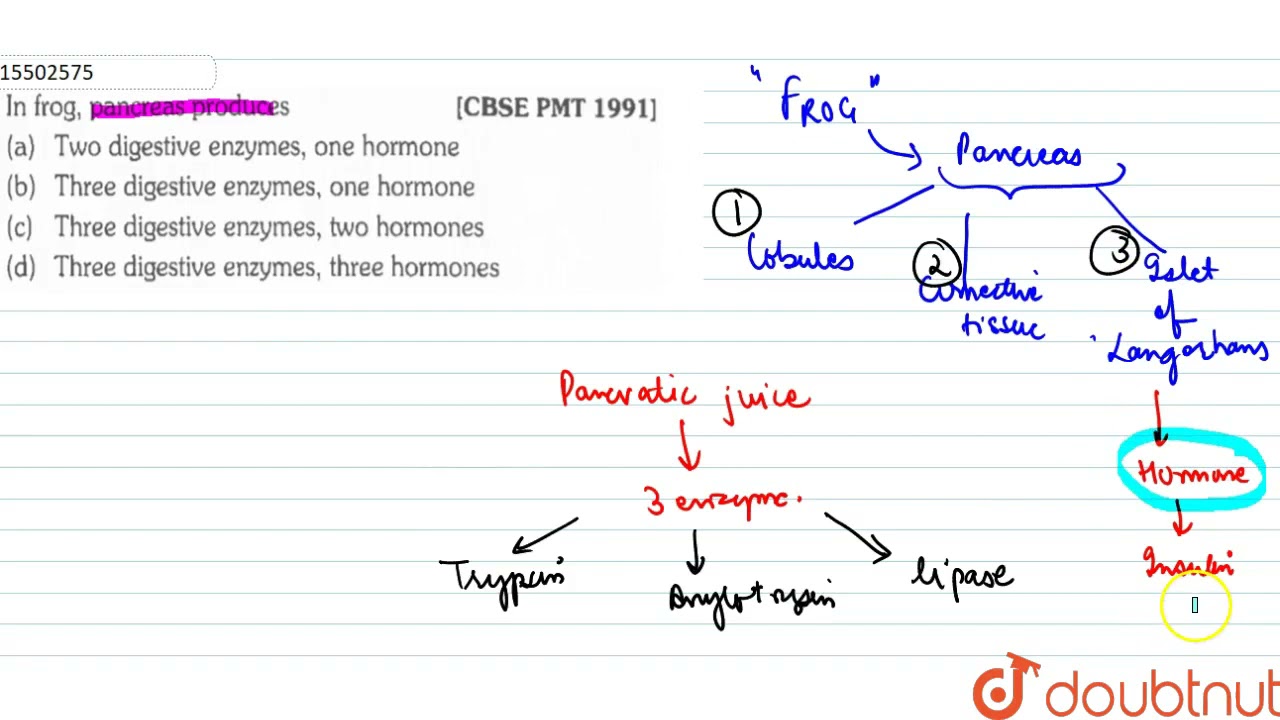 15502575
In frog, pancreas produces [CBSE PMT 1991]
(a) Two digestive enzymes, one hormone
(b) Three digestive enzymes, one hormone
(c) Three digestive enzymes, two hormones
(d) Three digestive enzymes, three hormones
"FROG"
Pancreas
1
Lobules
2
Connective
tissue
3
Islet
of
Langerhans
Pancratic juice
3 enzyme.
Trypsin
lipase
Hormone
Insulin
doubtnut